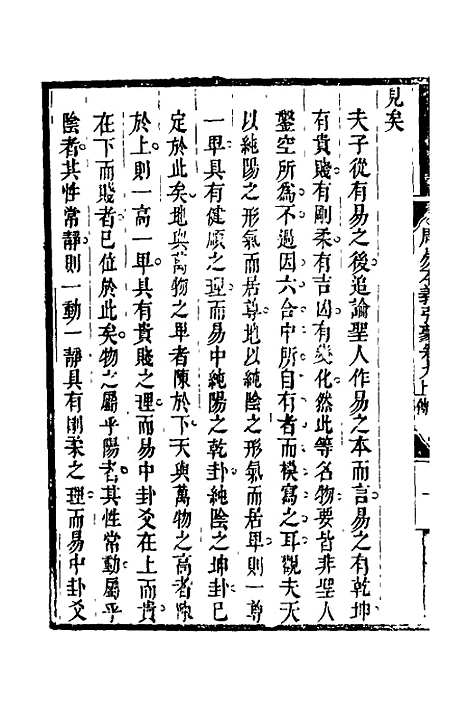 見矣
夫子從有易之後追論聖人作易之本而言易之有乾坤
有貴賤有剛柔有吉凶有變化然此等名物要皆非聖人
鑿空所為不過因六合中所自有者而模寫之耳觀夫天
以純陽之形氣而居尊地以純陰之形氣而居畢則一尊
一畢具有健順之理而易中純陽之乾卦純陰之坤卦已
定於此矣地與萬物之畢者陳於下天與萬物之高者陳
於上則一高一畢具有貴賤之理而易中卦爻在上而貴
在下而賤者已位於此矣物之屬乎陽者其性常動屬乎
陰者其性常靜則一動一靜具有剛柔之理而易中卦爻
周易本義引蒙卷九上傳